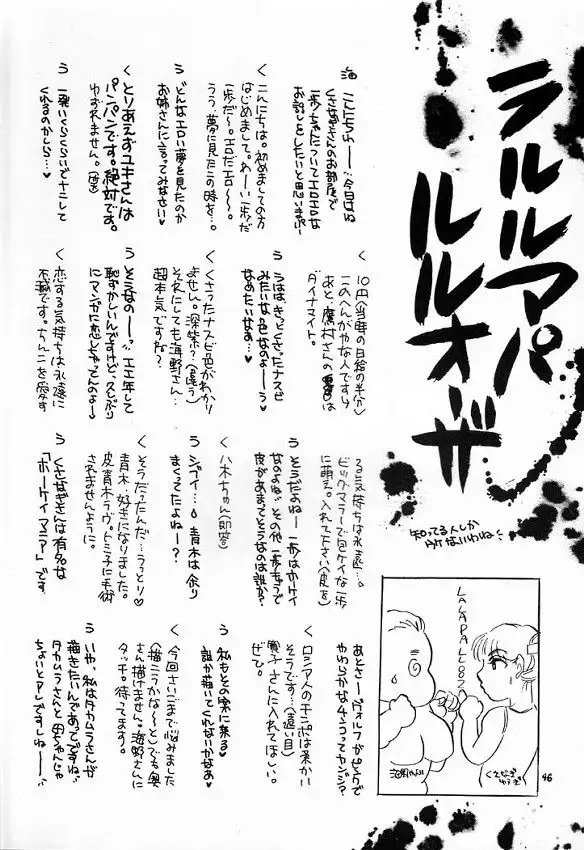 ラルルマパ
ルルオーザ
知ってる人しか
ウケないわね:
海 こんにちわー…今日はね
くさなぎさんのお部屋で
一歩ちゃんについてエロエロな
お話しをしたいと思いますー
く こんにちは。初めましての方
はじめまして。わーい一歩だ
一歩だ〜。エロだエロ〜。
うう、夢に見たこの時を…。
う どんなエロい夢を見たのか
お姉さんに言ってみなさい♥
く とりあえずユキさんは
パンパンです。絶対です。
ゆずれません。
う 一発いくらくらいでナニして
くれるのかしら…♥
く 10円(当時の日給の半分)
このへんがやな人ですけ
あと、鷹村さんの
ダイナマイト。
う うはは、きっとくさったナスび
みたいな色なのよーう
なめたいなあ…♥
く くさったナスび色がわかり
ません。深緑?(違う)
それにしても海野さん…
超本気ですな?
う そうなのー…エエ年して
恥ずかしいんですけど久しぶり
にマンガに恋しちゃってんのよ♥
く 恋する気持ちは永遠に
不滅です。ちんこを愛す
る気持ちは永遠…。
ビッグマラーで包ケイな一歩
に萌え。入れて下さい(皮を)
う そうだよねー 一歩はホーケイ
なのよね。その他一歩キャラで
皮があまってそうなのは誰か?
く 八木ちゃん(即答)
う シブイ… 青木は余り
まくってたよねー?
く そうだったんだ…うっとり♡
青木…好きになりました。
皮青木ラヴ。トミ子に手術
されませんように。
う くさなぎさんは有名な
「ホーケイマニア」です
あとさーヴォルフがピンクで
やわらかなチンコってカンジ?
く ロシア人のチンポは柔かい
そうです…(遠い目)
寛子さんに入れてほしい。
ぜひ。
う 私もその案に乗る♥
誰か描いてくれないかなあ♥
く 今回さいごまで悩みました
(描こうかな〜)とても奥
さん描けません。海野さんに
タッチ。待ってます。
う いや、私はタカムラさんが
描きたいんであってですね:
タカムラさんと母ちゃんじゃ
ちょいとアレですしねー…
LALAPALLOOZA
くさなぎ
ゆうぎ
46